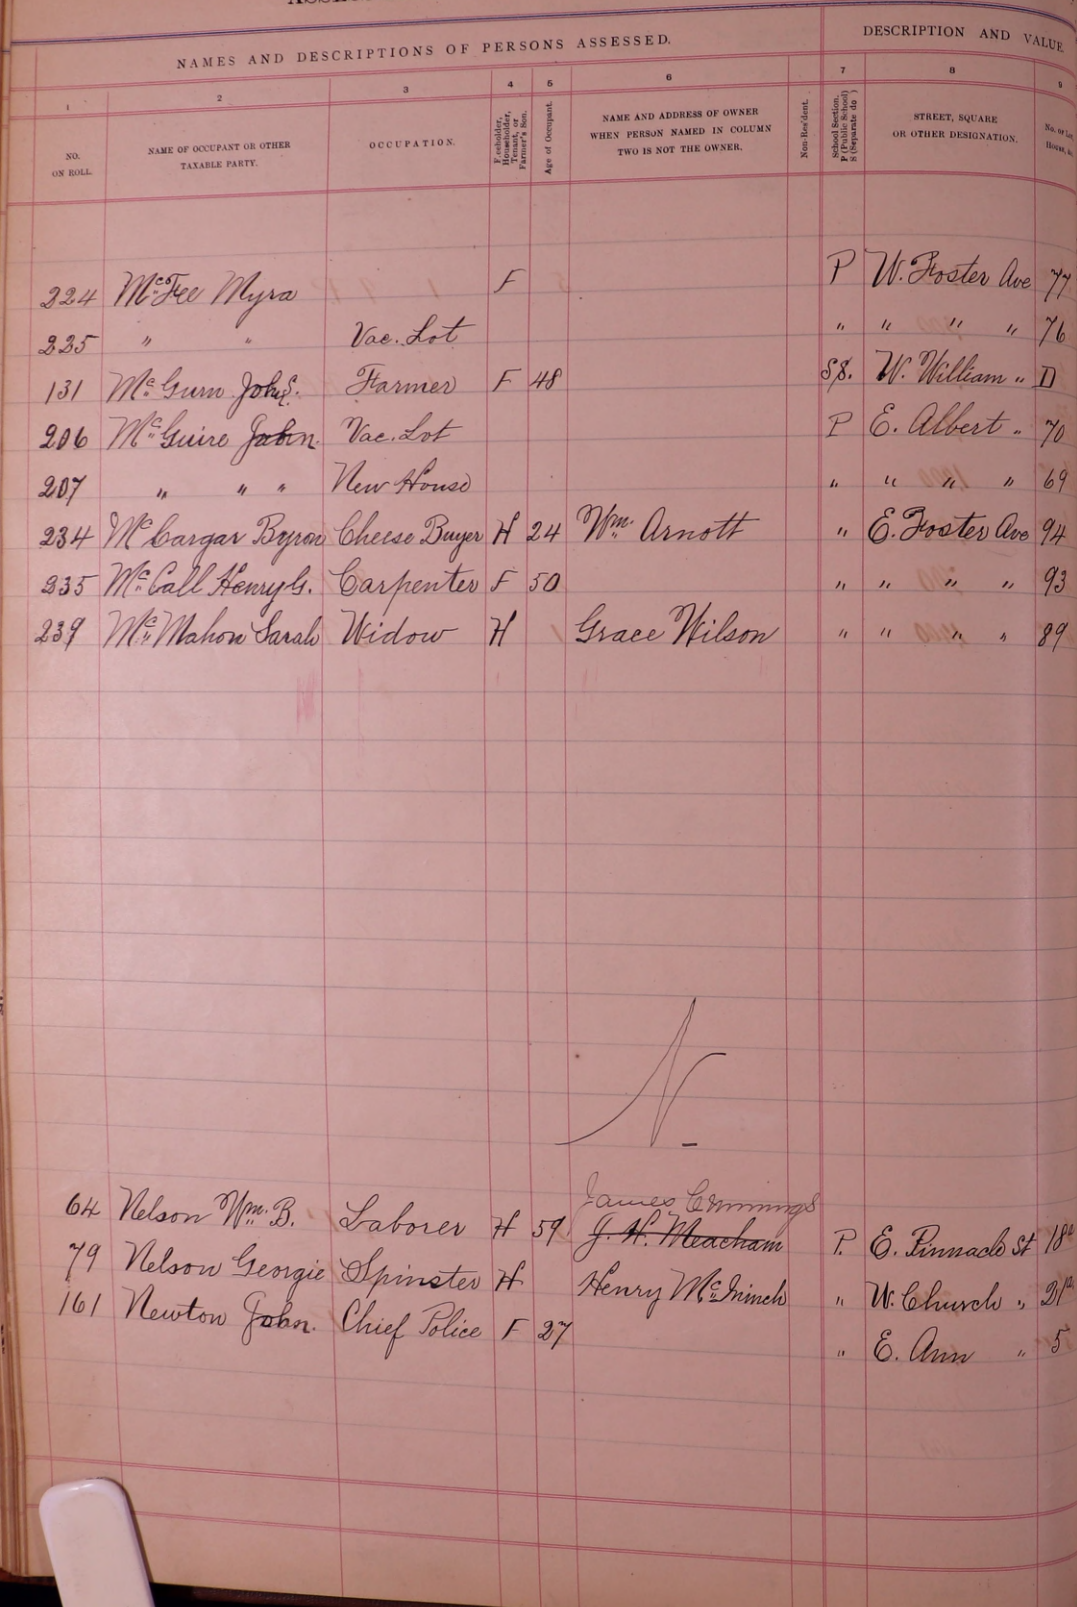 NAMES AND DESCRIPTIONS OF PERSONS ASSESSED.
DESCRIPTION AND VALUE
1 2 3 4 5 6 7 8 9
NO. ON ROLL.
NAME OF OCCUPANT OR OTHER TAXABLE PARTY.
OCCUPATION.
Freeholder, Householder, Tenant, or Farmer's Son.
Age of Occupant.
NAME AND ADDRESS OF OWNER WHEN PERSON NAMED IN COLUMN TWO IS NOT THE OWNER.
Non-Resident.
School Section. P (Public School) S (Separate do )
STREET, SQUARE OR OTHER DESIGNATION.
No. or Lot, House, &c.
224 McFee Myra F P W. Foster Ave 77
225 " " Vac. Lot " " " " 76
131 Mc Gurn John S. Farmer F 48 SS. W. William " D
206 Mc Guire John. Vac. Lot P E. Albert " 70
207 " " " New House " " " " 69
234 Mc Cargar Byron Cheese Buyer H 24 Wm. Arnott " E. Foster Ave 94
235 Mc Call Henry G. Carpenter F 50 " " " " 93
239 Mc Mahon Sarah Widow H Grace Wilson " " " " 89
N
James Cummings
64 Nelson Wm. B. Laborer H 59 J. H. Meacham P. E. Pinnacle St 18
79 Nelson Georgie Spinster H Henry McIninch " W. Church " 21
161 Newton John. Chief Police F 27 " E. Ann " 5